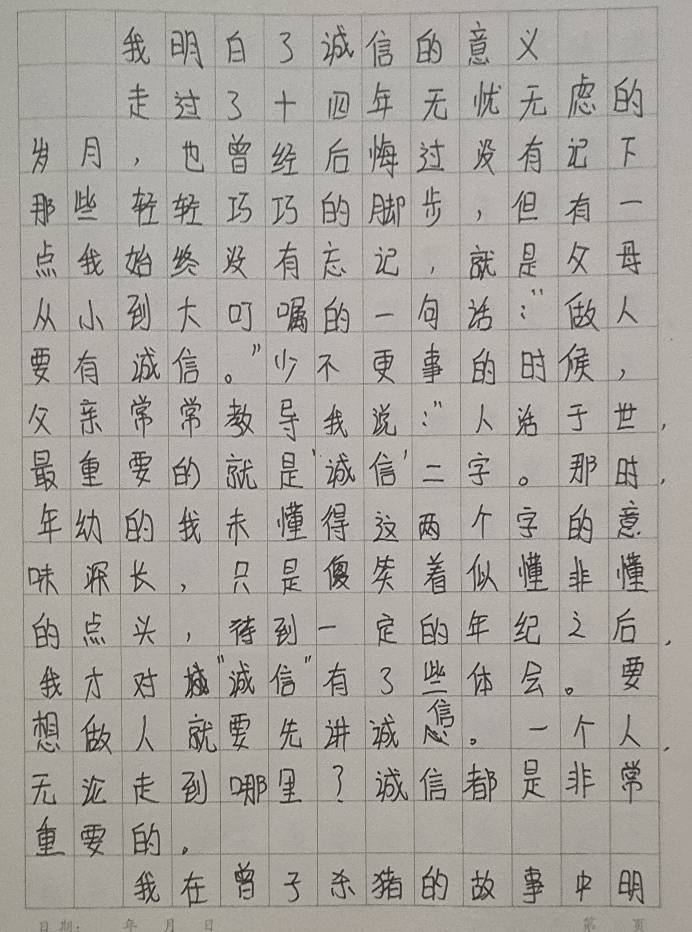 我明白了诚信的意义
走过了十四年无忧无虑的
岁月，也曾经后悔过没有记下
那些轻轻巧巧的脚步，但有一
点我始终没有忘记，就是父母
从小到大叮嘱的一句话：“做人
要有诚信。”少不更事的时候，
父亲常常教导我说：“人活于世，
最重要的就是‘诚信’二字。那时，
年幼的我未懂得这两个字的意
味深长，只是傻笑着似懂非懂
的点头，待到一定的年纪之后，
我才对“诚信”有了些体会。要
想做人就要先讲诚信。一个人，
无论走到哪里？诚信都是非常
重要的。
我在曾子杀猪的故事中明
日期： 年 月 日 第 页